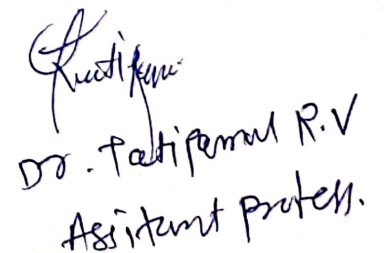 Dr. Patipamul R.V
Assitant protess.